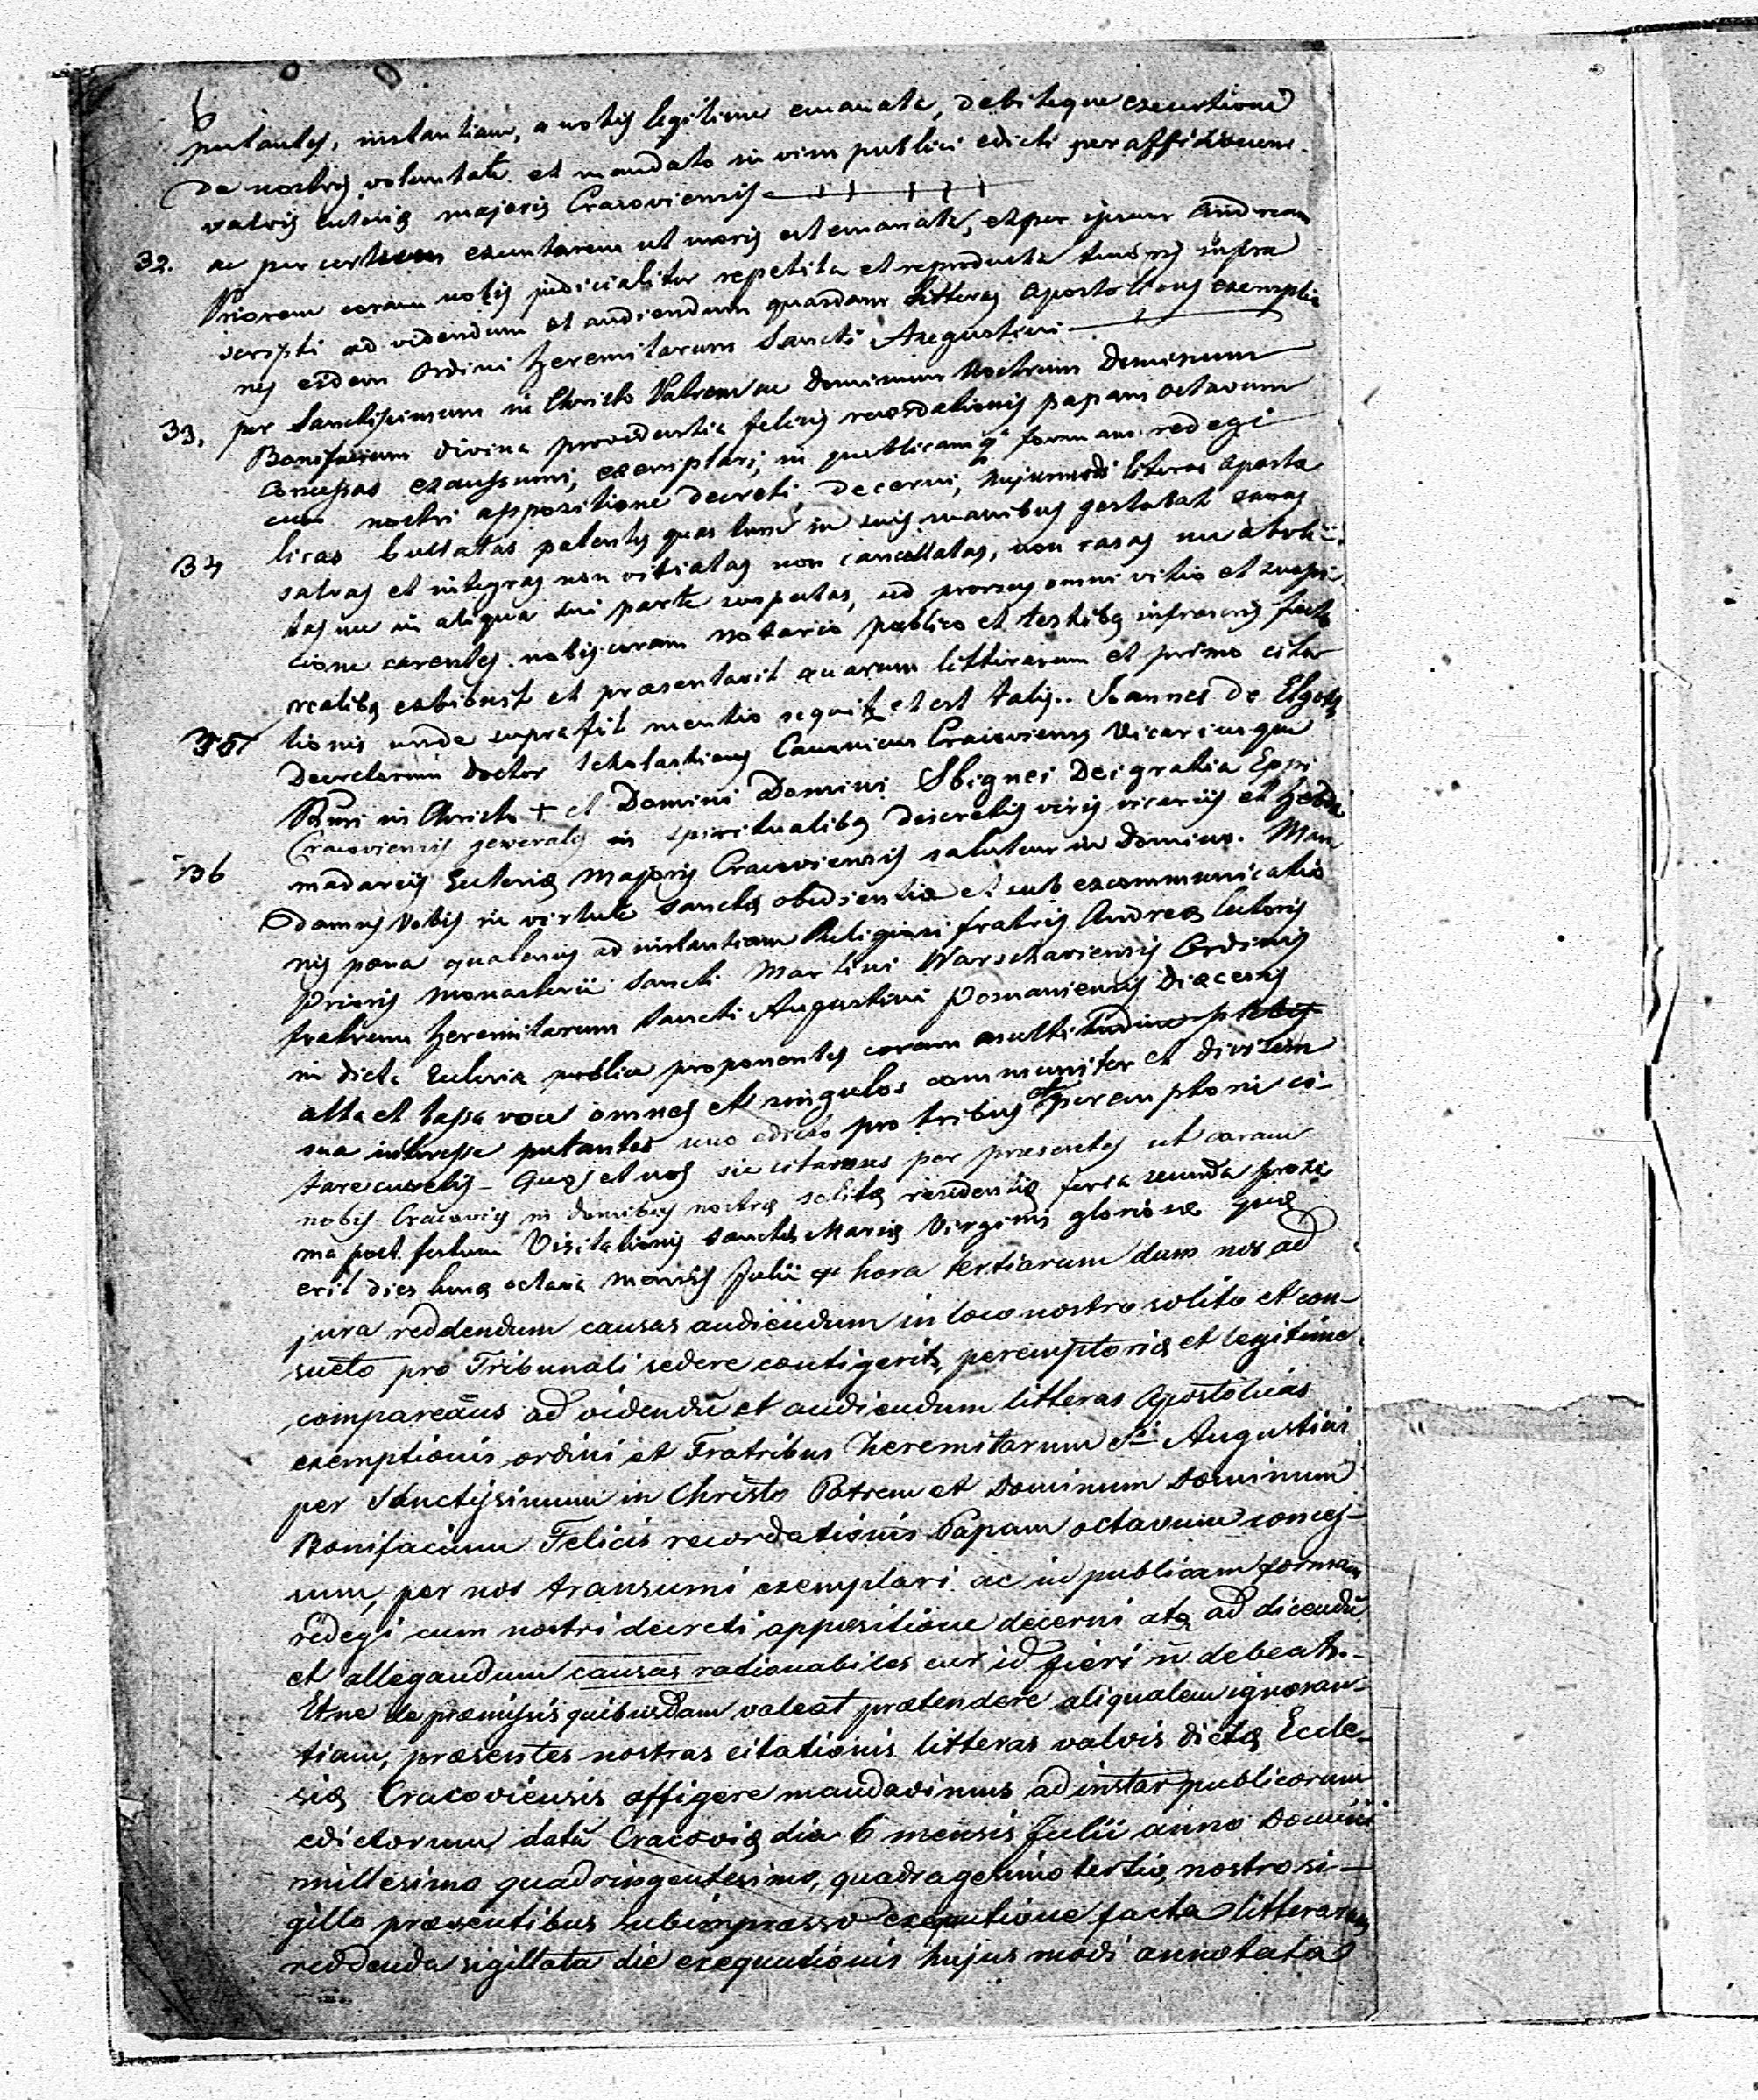 6
putantes, instantiam, a nobis legitime emanata, debiteque executioni
de nostris voluntate et mandato in vim publici edicti per affixionem
valvis Ecclesiæ majoris Cracoviensis
32. ac per certum executorem ut moris est emanata, et per ipsum Andream
Priorem coram nobis judicialiter repetita et reproducta tenoris infra
scripti ad videndum et audiendum quasdam litteras Apostolicas exemptio
nis eidem Ordini Heremitarum Sancti Augustini
33. per Sanctissimum in Christo Patrem ac Dominum Nostrum Dominum
Bonifacium divina providentia felicis recordationis papam octavum
concessas exaussumi, exemplari, in publicamq formam redegi
cum nostri appositione decreti, decerni, hujusmodi literas aposto
34 licas bullatas patentes quas tunc in suis manibus gestabat sanas
salvas et integras non vitiatas non cancellatas, non rasas nec aboli-
tas nec in aliqua sui parte suspectas, sed prorsus omni vitio et suspi
cione carentes nobis coram notario publico et testibq infrascris facto
realibq exhibuit et præsentavit quarum litterarum et primo cita
35 tionis unde supra fit mentio sequitr et est talis. Joannes de Elgoth
Decretorum doctor Scholasticus Canonicus Cracoviensis Vicariusque
Patri in Christo + et Domini Domini Sbignei Dei gratia Eppi
Cracoviensis generalis in spiritualibq discretis viris vicariis et hebdo
36 madariis Ecclesiæ Majoris Cracoviensis salutem in Domino. Man
damus Vobis in virtute sanctæ obedientiæ et sub excommunicatio
nis pœna quatenus ad instantiam Religiosi fratris Andreæ lectoris
Prioris Monasterii Sancti Martini Warschaviensis Ordinis
fratrum heremitarum Sancti Augustini Posnaniensis Diæcesis
in dicta Ecclesia publice proponentes coram multitudine plebis
alta et lapa voce omnes et singulos communiter et divisem
sua interesse putantes uno edicto pro tribus peremptorie ci-
tare curetis - Quos et nos sic citamus per præsentes ut coram
nobis Cracoviæ in domibus nostræ solitæ residentiæ feria secunda proxi
ma post festum Visitationis Sanctæ Mariæ Virginis gloriosæ quæ
erit dies lunæ octava mensis Julii hora tertiarum dum nos ad
jura reddendum causas audiendum in loco nostro solito et con-
sueto pro Tribunali sedere contigerit, peremptorie et legitime
compareāus ad videndū et audiendum litteras Apostolicas
exemptionis ordini et Fratribus Heremitarum Sti Augustini
per Sanctissimum in Christo Patrem et Dominum Dominum
Bonifacium Felicis recordationis Papam octavum conces-
sum, per nos transumi exemplari ac in publicam formam
redegi cum nostri decreti appositione decerni atq ad dicendū
et allegandum causas rationabiles cur id fieri n̄ debeat.-
Et ne de præmissis quibusdam valeat prætendere aliqualem ignoran-
tiam, præsentes nostras citationis litteras valvis dictæ Eccle-
siæ Cracoviensis affigere mandavimus ad instar publicorum
edictorum, datū Cracoviæ dia 6 mensis Julii anno Domini
millesimo quadringentesimo, quadragesimo tertio, nostro si-
gillo præsentibus subimpresso exequtione facta litterarum
reddenda sigillata die exequutionis hujus modi annotata